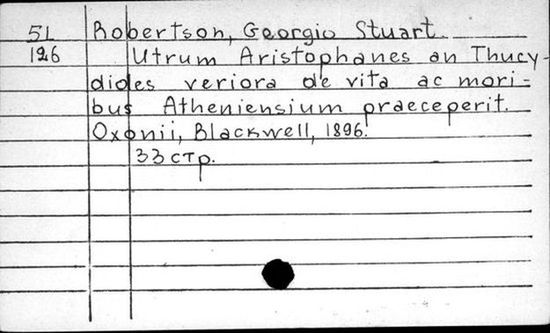 51 Robertson, Georgio Stuart.
126 Utrum Aristophanes an Thucy-
dides veriora de vita ac mori-
bus Atheniensium praeceperit.
Oxonii, Blackwell, 1896.
33 стр.